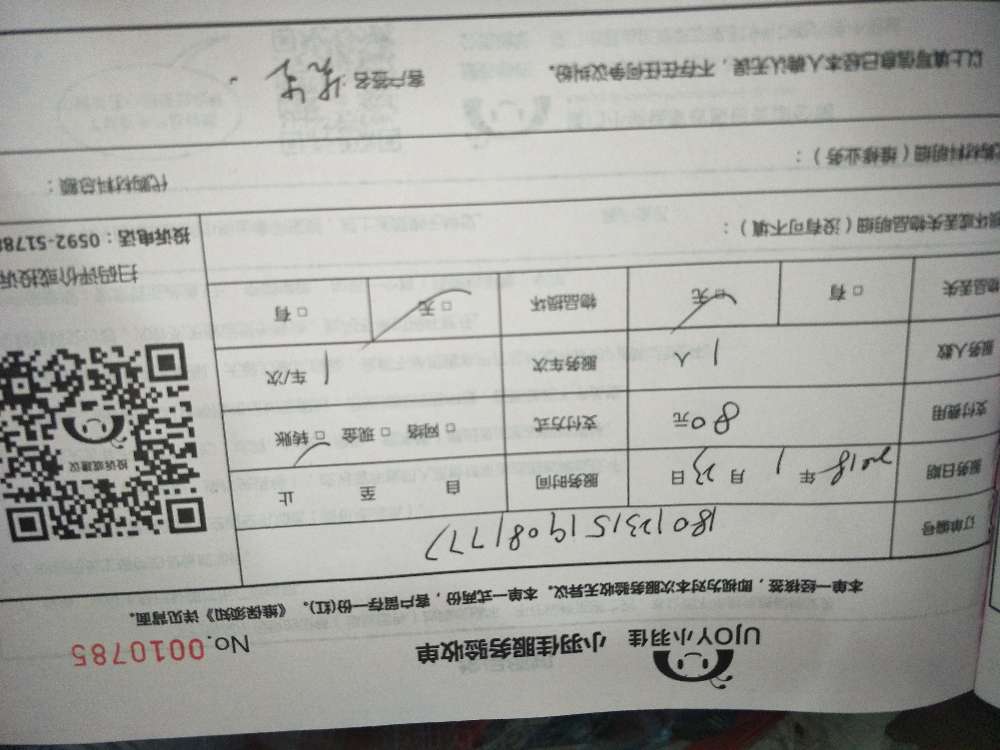 UJOY小羽佳 小羽佳服务验收单
No.0010785
本单一经核签，即视为对本次服务验收无异议。本单一式两份，客户留存一份(红)。《维保须知》详见背面。
订单编号 180123151908177
服务日期 2018年1月23日 服务时间 自 至 止
支付费用 80元 支付方式 □网络 □现金 □转账
服务人数 1人 服务车次 1车/次
物品丢失 □有 □无 物品损坏 □无 □有
投诉或建议
扫码评价或投诉
投诉电话：0592-5178
损坏或丢失物品明细（没有可不填）：
代购材料明细（维修业务）： 代购材料总额：
以上填写信息已经本人确认无误，不存在任何争议纠纷。 客户签名：